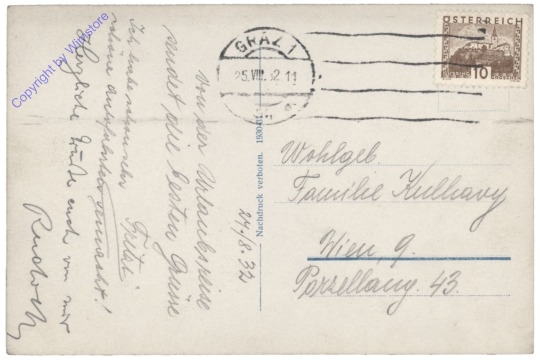 Copyright by Winstore
GRAZ 1
25.VIII.32 11
ÖSTERREICH
10
GROSCHEN
Von der Urlaubsreise
sendet die besten Grüsse
Fritzi
Ich habe schon sehr
schöne
gemacht!
Herzliche Grüße auch von mir
24./8.32
Nachdruck verboten.
Wohlgeb.
Familie Kulhavy
Wien, 9.
Porzellang. 43.